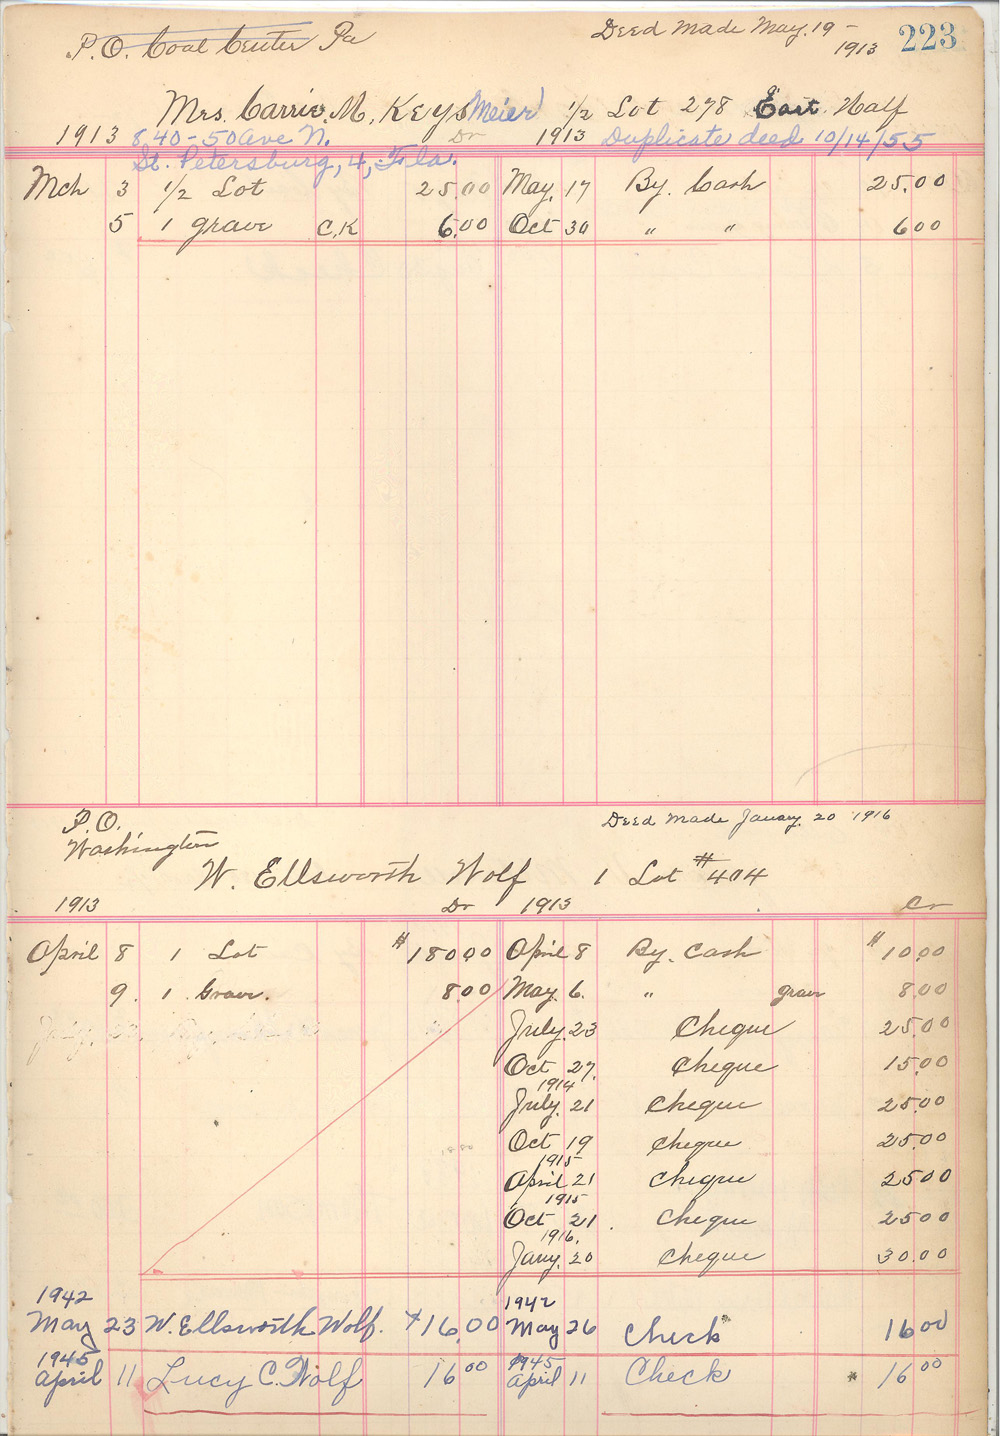 P.O. Coal Center Pa Deed Made May. 19 - 1913 223
Mrs. Carrie. M. Keys Meier 1/2 Lot 278 East Half
1913 840-50 Ave N. Dr 1913 Duplicate deed 10/14/55
St. Petersburg, 4, Fla.
Mch 3 1/2 Lot 25.00 May. 17 By. Cash 25.00
5 1 grave C.K 6.00 Oct 30 " " 6 00
P.O.
Washington
Deed Made January. 20 1916
W. Ellsworth Wolf 1 Lot #404
1913 Dr 1913 Cr
April 8 1 Lot $180.00 April 8 By. Cash $10.00
9. 1 Grave. 8.00 May. 6. " grave 8.00
July. 23 Cheque 25.00
Oct 27. Cheque 15.00
1914
July. 21 Cheque 25.00
Oct 19 Cheque 25.00
1915
April 21 Cheque 25 00
1915
Oct 21. Cheque 25 00
1916.
Jany. 20 Cheque 30.00
1942 1942
May 23 W. Ellsworth Wolf. 16.00 May 26 Check 16 00
1945 1945
April 11 Lucy C. Wolf 16 00 April 11 Check * 16 00